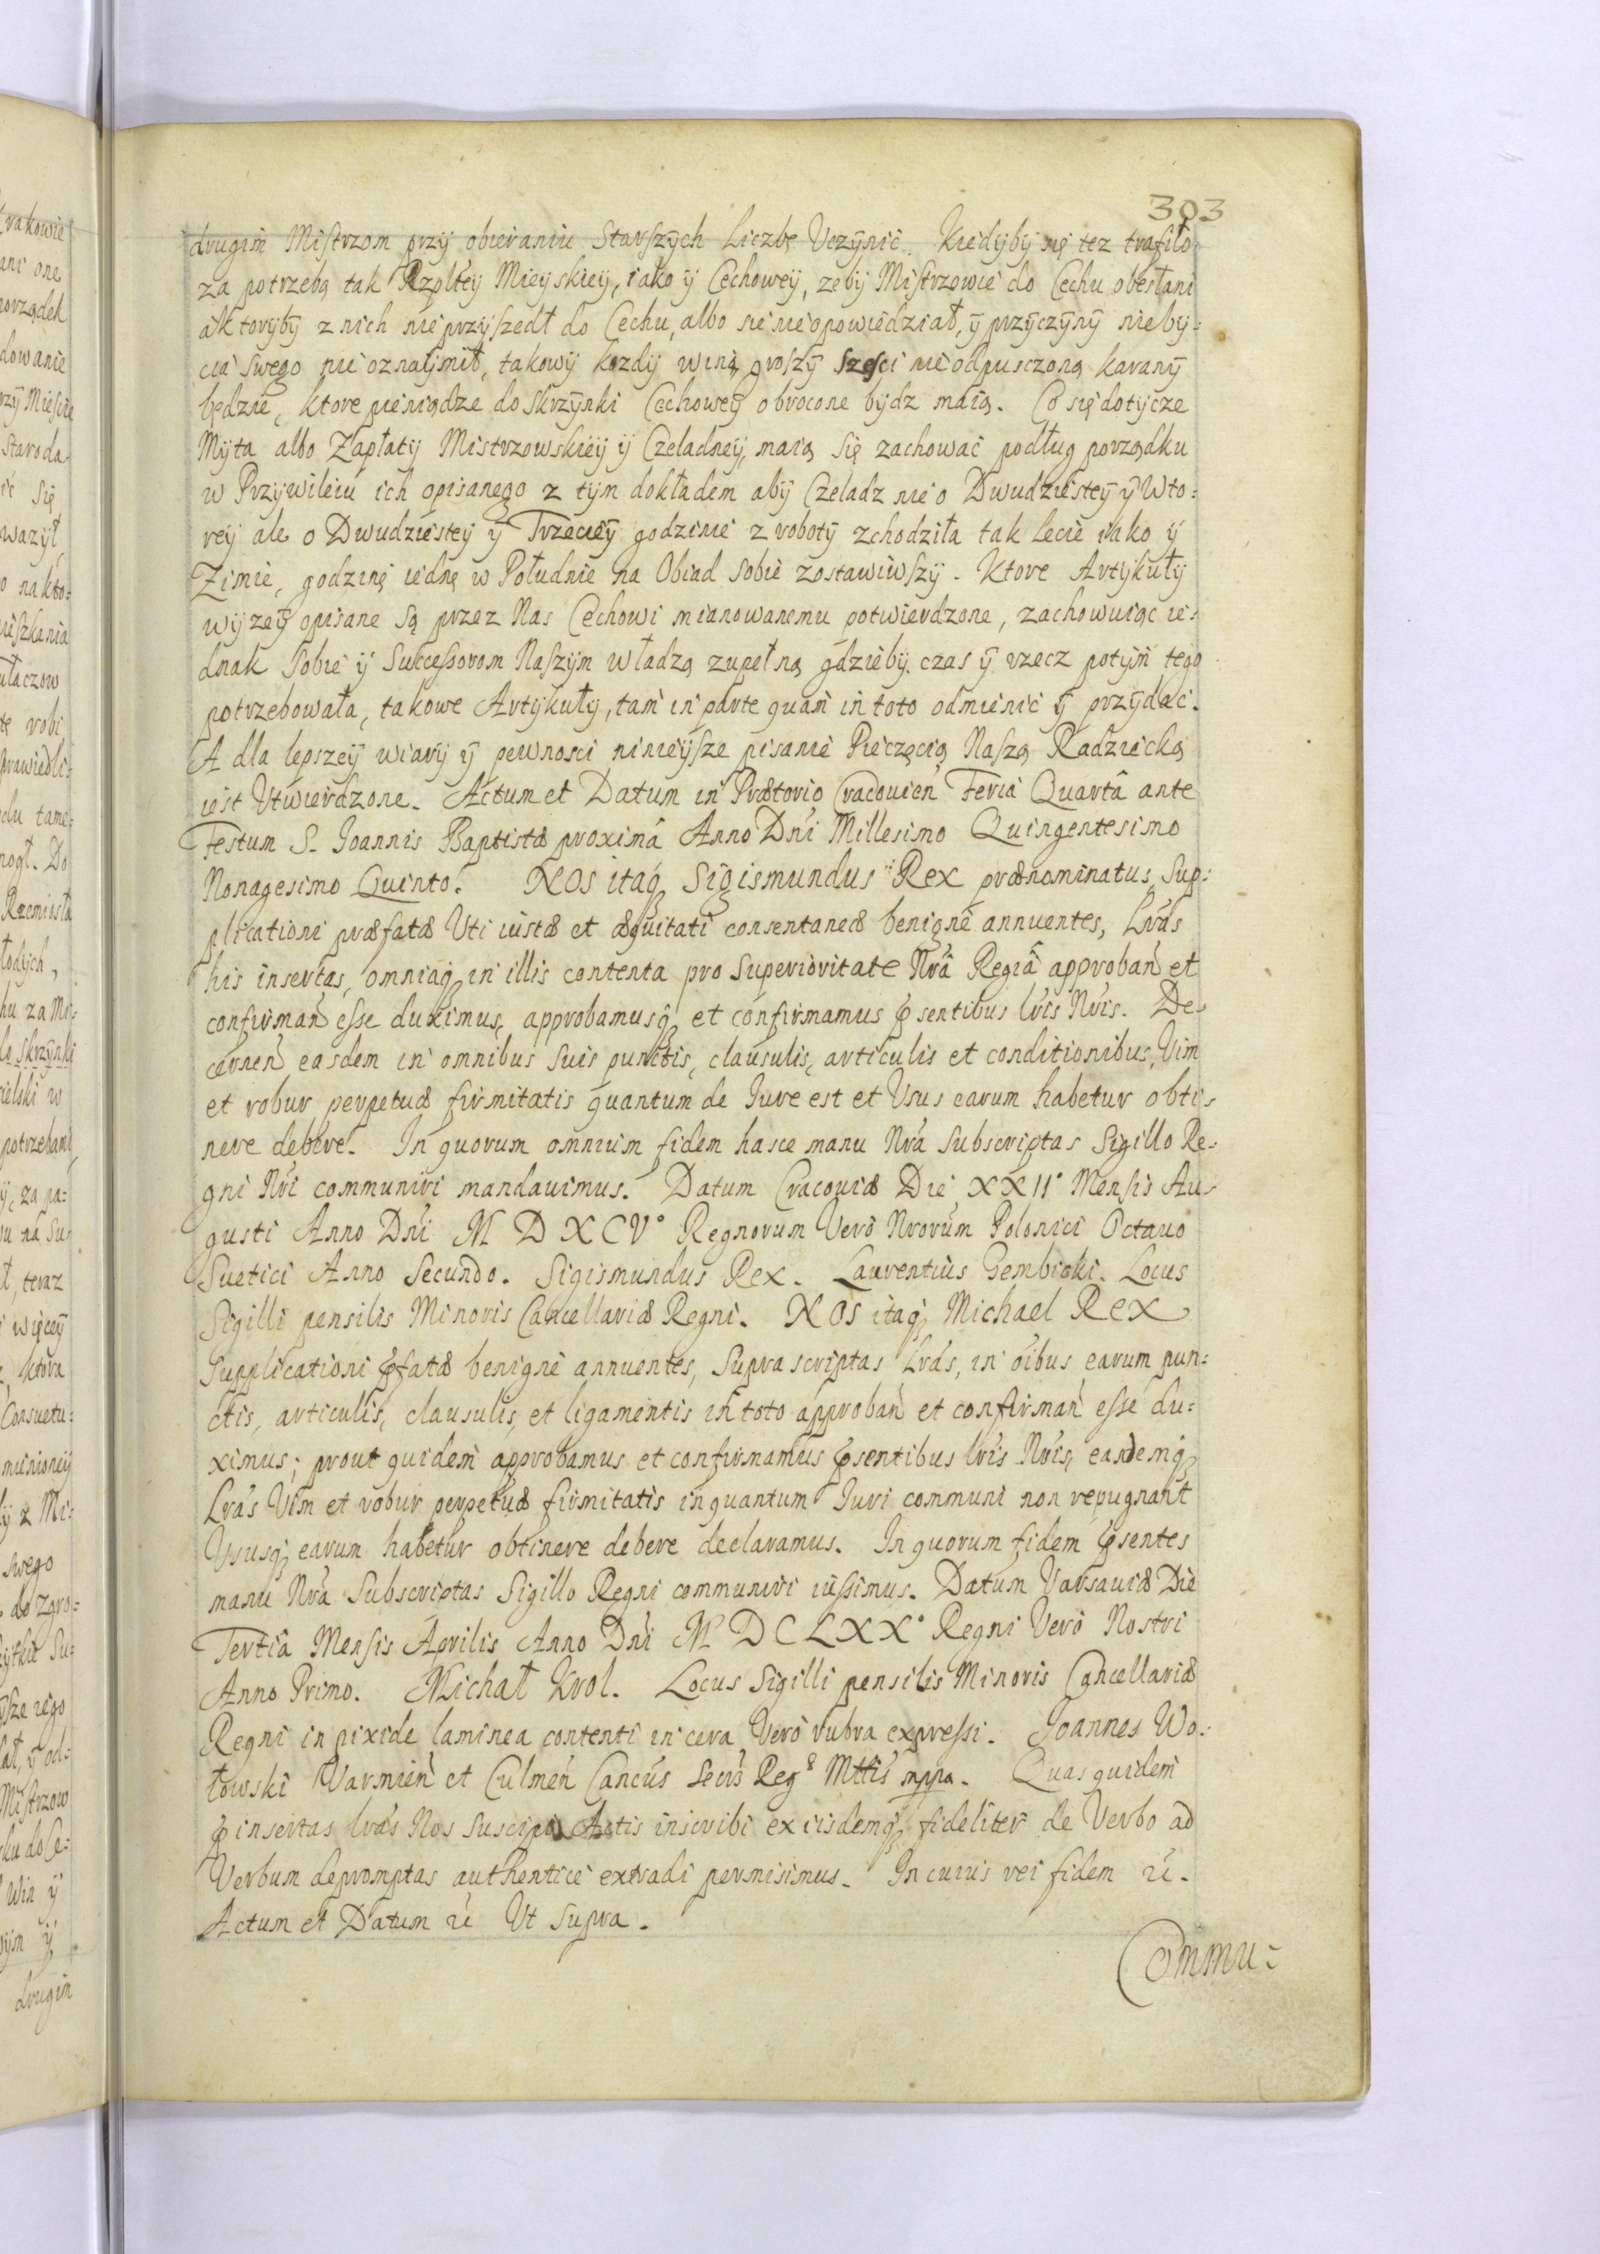 303
drugim Mistrzom przÿ obieraniu Starszÿch Liczbę Uczÿnić. Kiedÿbÿ się tez trafiło
za potrzebą tak Rzpltey Mieyskiey, iako ÿ Cechowey, zebÿ Mistrzowie do Cechu obesłani
aktorÿbÿ z nich nieprzÿszedł do Cechu, albo sie nieopowiedział, ÿ przÿczÿnÿ niebÿ:
cia swego nie oznaÿmił, takowÿ kozdÿ winą groszÿ szesci nieodpusczoną karanÿ
będzie, ktore pieniądze do skrzÿnki Cechoweÿ obrocone bÿdz maią. Co się dotÿcze
Mÿta albo Zapłatÿ Mistrzowskieÿ ÿ Czeladneÿ, maią się zachować podług porządku
w Przÿwileiu ich opisanego z tÿm dokładem abÿ Czeladz nie o Dwudziesteÿ ÿ Wto:
reÿ ale o Dwudziesteÿ ÿ Trzecieÿ godzinie z robotÿ zchodziła tak lecie iako ÿ
Zimie, godzinę iednę w Południe na Obiad sobie zostawiwszÿ. Ktore Artÿkułÿ
wÿzeÿ opisane są przez Nas Cechowi mianowanemu potwierdzone, zachowuiąc ie:
dnak sobie ÿ Sukcessorom Naszÿm władzą zupełną gdziebÿ czas ÿ rzecz potÿm tego
potrzebowała, takowe Artÿkułÿ, tam in parte quam in toto odmienić ÿ przÿdać.
A dla lepszeÿ wiarÿ ÿ pewnosci ninieÿsze pisanie Pieczęcią Naszą Radziecką
iest Utwierdzone. Actum et Datum in Prætorio Cracovien Feria Quartâ ante
Festum S. Joannis Baptistæ proximâ Anno Dni Millesimo Quingentesimo
Nonagesimo Quinto. NOS itaq Sigismundus Rex prænominatus, Sup:
plicationi præfatæ Uti iustæ et æquitati consentaneæ benigne annuentes, Lras
his insertas, omniaq in illis contenta pro Superioritate Nrâ Regiâ approban et
confirman esse duximus, approbamusq et confirmamus psentibus lris Nris. De:
cernen easdem in omnibus suis punctis, clausulis, articulis et conditionibus, Vim
et robur perpetuæ firmitatis quantum de Iure est et Usus earum habetur obti:
nere debere. In quorum omnium fidem hasce manu Nra Subscriptas Sigillo Re:
gni Nri communiri mandavimus. Datum Cracoviæ Die XXII° Mensis Au:
gusti Anno Dni M D X C V° Regnorum Vero Nrorum Polonici Octavo
Suetici Anno Secundo. Sigismundus Rex. Laurentius Gembicki. Locus
Sigilli pensilis Minoris Cancellariæ Regni. NOS itaq Michael Rex
Supplicationi pfatæ benigne annuentes, Supra scriptas Lras, in oibus earum pun:
ctis, articulis, clausulis, et ligamentis in toto approban et confirman esse du:
ximus; prout quidem approbamus et confirmamus psentibus lris Nris, easdemq
Lras Vim et robur perpetuæ firmitatis in quantum Iuri communi non repugnant
Ususq earum habetur obtinere debere declaramus. In quorum fidem psentes
manu Nra Subscriptas Sigillo Regni communiri iussimus. Datum Varsaviæ Die
Tertia Mensis Aprilis Anno Dni M D C L X X° Regni Vero Nostri
Anno Primo. Michał Krol. Locus Sigilli pensilis Minoris Cancellariæ
Regni in pixide laminea contenti in cera Vero rubra expressi. Joannes Wo:
łowski Varmien et Culmen Cancus Secrs Reg Mttis mppa. Quas quidem
pinsertas lras Nos suscipi Actis inscribi ex iisdemq fideliter de Verbo ad
Verbum depromptas authentice extradi permisimus. In cuius rei fidem ũ.
Actum et Datum ũ Ut supra.
Commu: